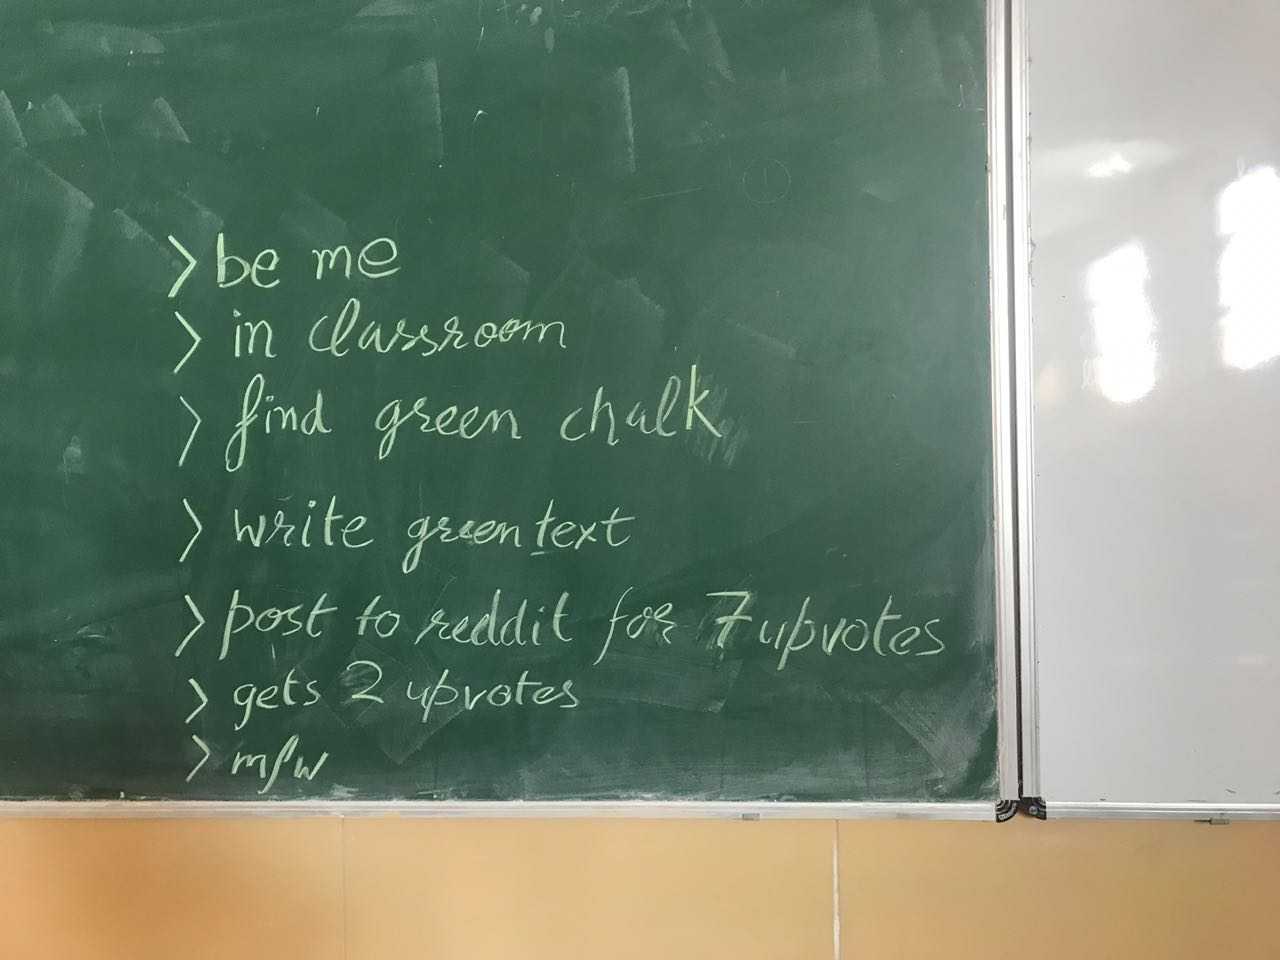 > be me
> in classroom
> find green chalk
> write greentext
> post to reddit for 7 upvotes
> gets 2 upvotes
> mfw